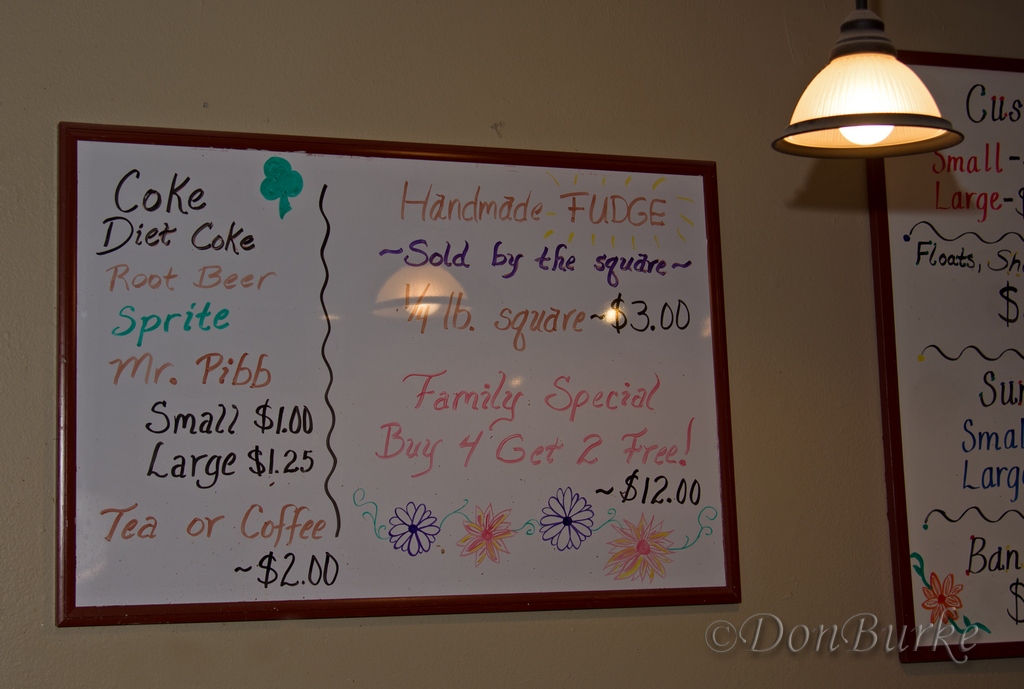 Coke
Diet Coke
Root Beer
Sprite
Mr. Pibb
Small $1.00
Large $1.25
Tea or Coffee
~$2.00
Handmade FUDGE
~Sold by the square~
1/4 lb. square~$3.00
Family Special
Buy 4 Get 2 Free!
~$12.00
Small-
Large-$
Floats,
$
Large
$
©DonBurke